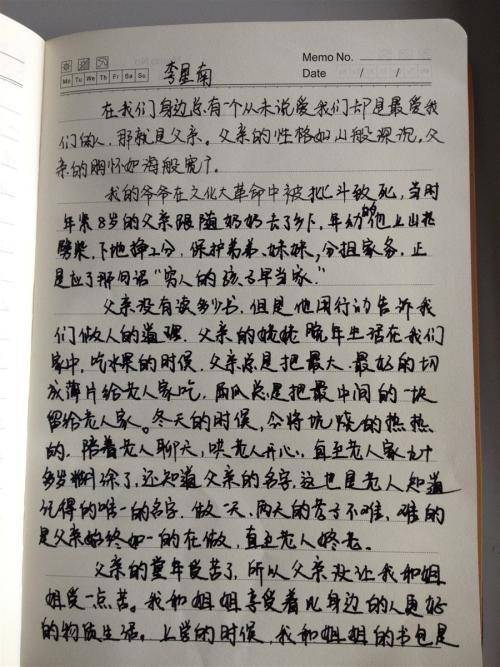 Memo No.
Mo Tu We Th Fr Sa Su
Date / /
李星南
在我们身边总有一个从未说爱我们却是最爱我
们的人，那就是父亲。父亲的性格如山般深沉，父
亲的胸怀如海般宽广。
我的爷爷在文化大革命中被批斗致死，当时
年仅8岁的父亲跟随奶奶去了乡下，年幼的他上山
劈柴，下地挣工分，保护弟弟、妹妹，分担家务，正
是应了那句话“穷人的孩子早当家。”
父亲没有读多少书，但是他用行动告诉我
们做人的道理。父亲的姥姥晚年生活在我们
家中，吃水果的时候，父亲总是把最大、最好的切
成薄片给老人家吃，西瓜总是把最中间的一块
留给老人家。冬天的时候，会将炕烧的热热
的，陪着老人聊天，哄老人开心，直至老人家九十
多岁糊涂了，还知道父亲的名字，这也是老人知道
记得的唯一的名字，做一天、两天的孝子不难，难的
是父亲始终如一的在做，直至老人终老。
父亲的童年受苦了，所以父亲没让我和姐
姐受一点苦。我和姐姐享受着比身边的人更好
的物质生活。上学的时候，我和姐姐的书包是